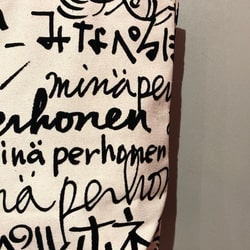 ーみなぺるほ
minäper
erhonen
inä perhonen
nä perhon
ルホネ